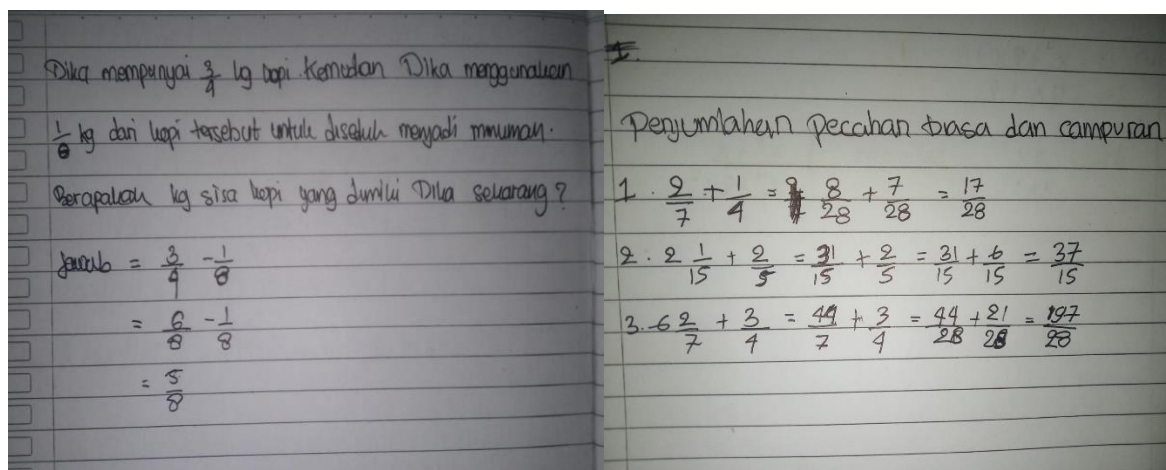 Dika mempunyai 3/4 kg kopi. Kemudian Dika menggunakan
1/8 kg dari kopi tersebut untuk diseduh menjadi minuman.
Berapakah kg sisa kopi yang dimiliki Dika sekarang?
Jawab = 3/4 - 1/8
= 6/8 - 1/8
= 5/8
1.
Penjumlahan pecahan biasa dan campuran
1. 2/7 + 1/4 = 8/28 + 7/28 = 17/28
2. 2 1/15 + 2/5 = 31/15 + 2/5 = 31/15 + 6/15 = 37/15
3. 6 2/7 + 3/4 = 44/7 + 3/4 = 44/28 + 21/28 = 197/28